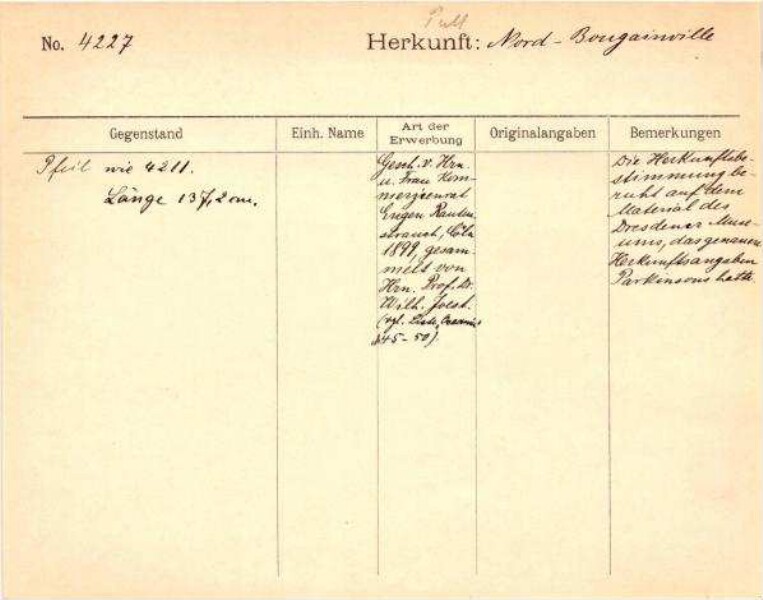 No. 4227
Herkunft: Nord-Bougainville
Gegenstand
Einh. Name
Art der Erwerbung
Originalangaben
Bemerkungen
Pfeil wie 4211.
Länge 137,2 cm.
Gesch. v. Hrn.
u. Frau Kom-
merzienrat
Eugen Rauten-
strauch, Cöln
1899, gesam-
melt von
Hrn. Prof. Dr.
Wilh. Joest.
(vgl. Liste,
45-50).
Die Herkunftsbe-
stimmung be-
ruht auf dem
Material des
Dresdener Muse-
ums, das genauere
Herkunftsangaben
Parkinsons hatte.